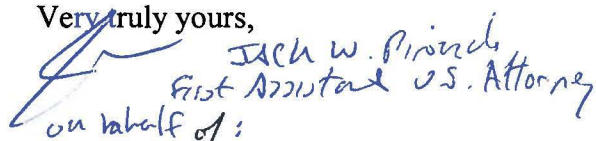 Very truly yours,
Jack W. Pirozzolo
First Assistant U.S. Attorney
on behalf of :